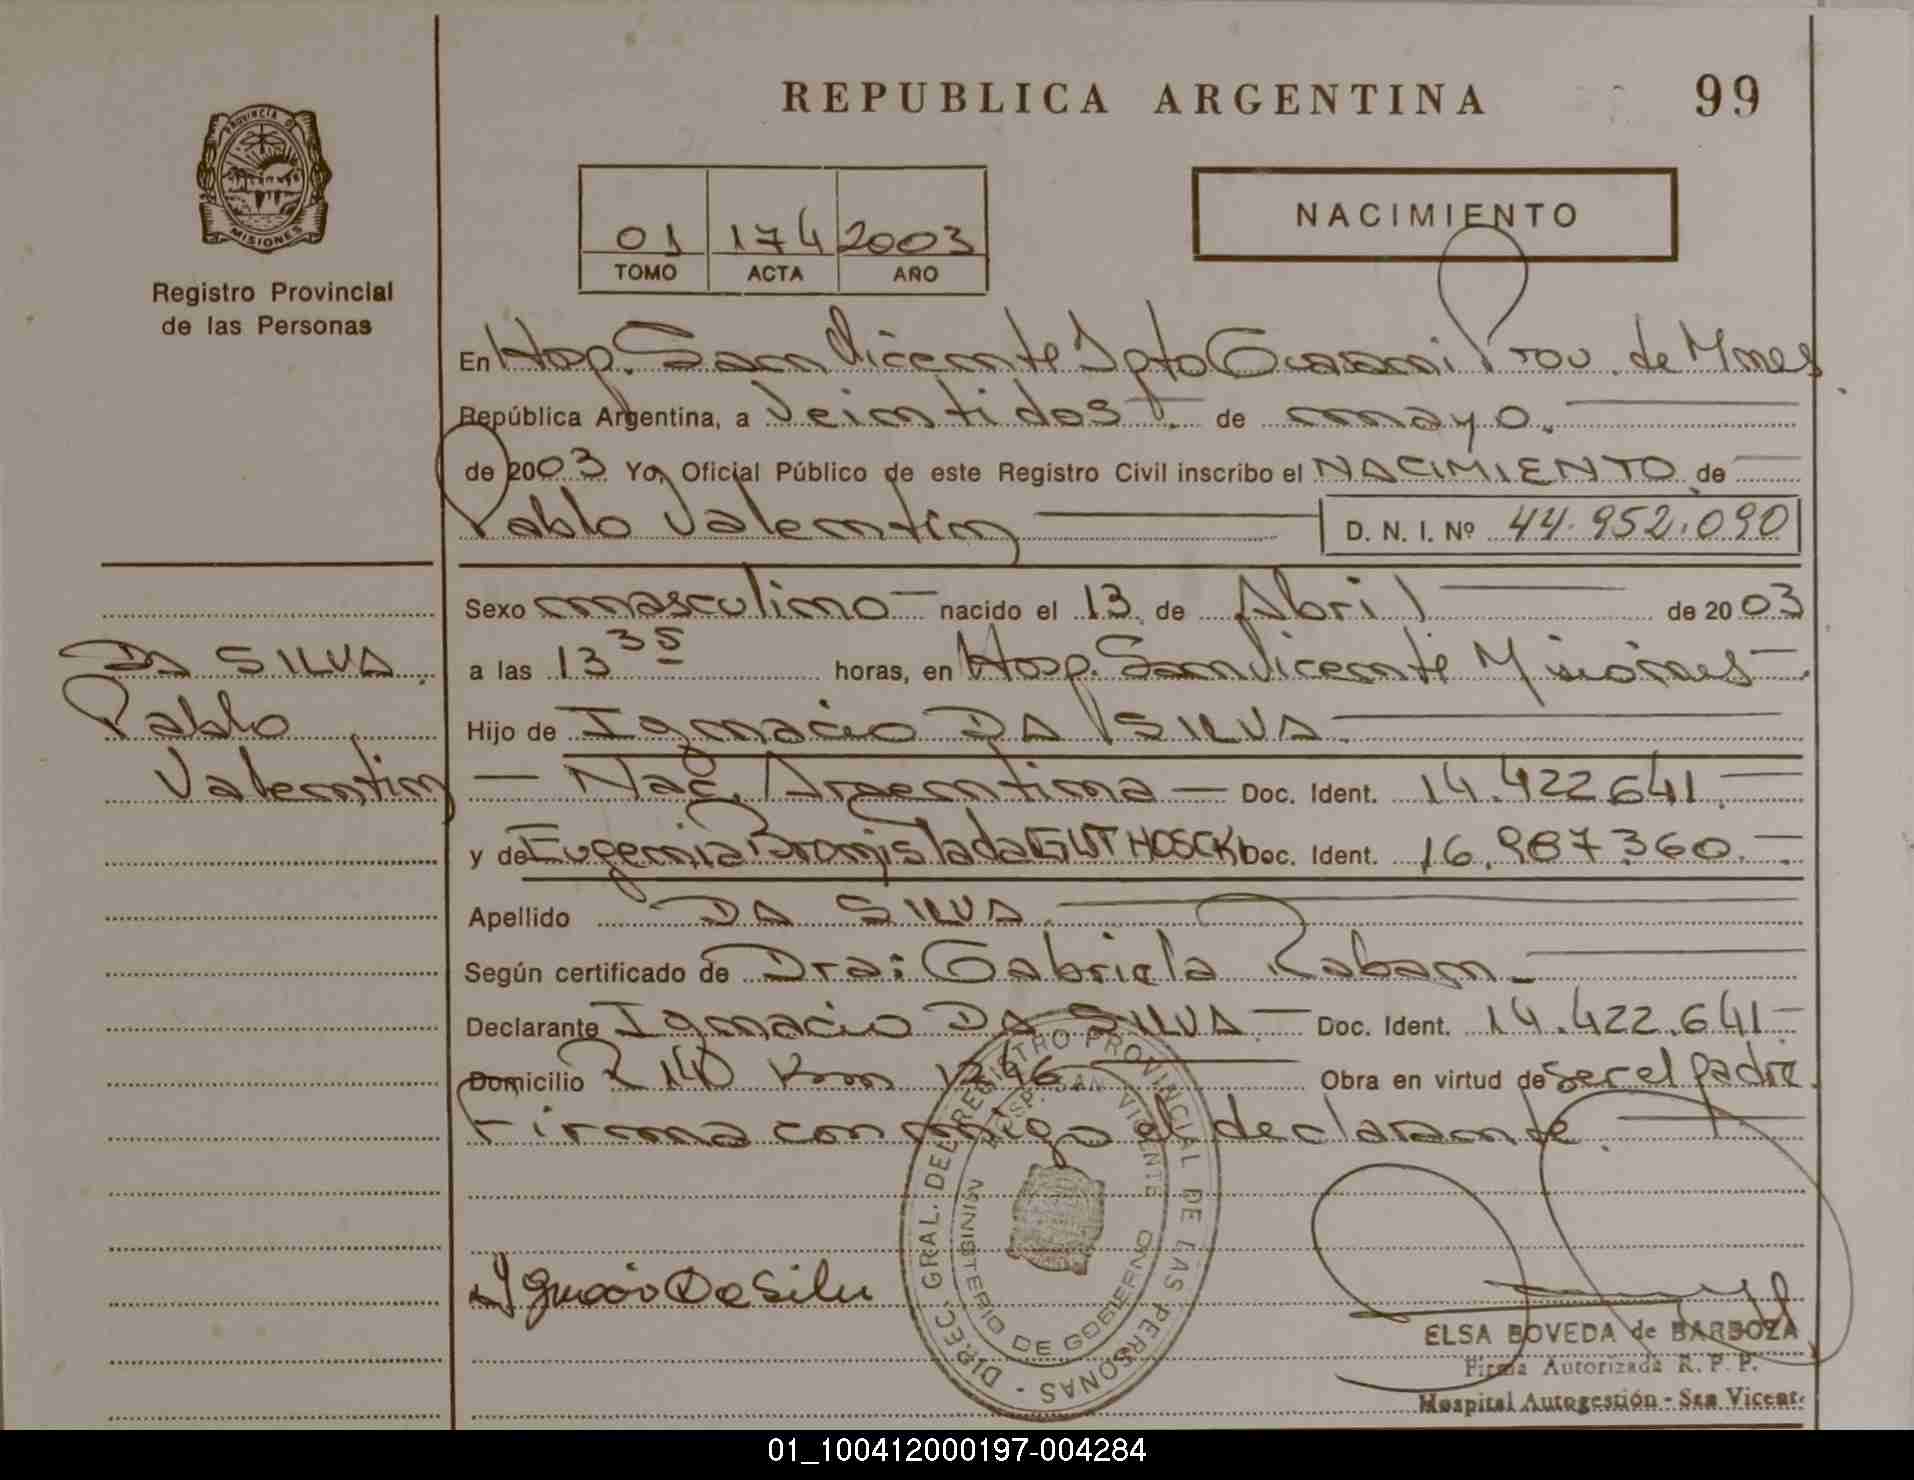 REPUBLICA ARGENTINA
99
PROVINCIA DE
MISIONES
Registro Provincial
de las Personas
01 174 2003
TOMO ACTA AÑO
NACIMIENTO
En Hosp. San Vicente Dpto Guarani Prov. de Mnes
República Argentina, a Veintidos de mayo.
de 2003 Yo, Oficial Público de este Registro Civil inscribo el NACIMIENTO de
Pablo Valentin D. N. I. Nº 44.952.090
Sexo masculino nacido el 13 de Abril de 2003
a las 13 35 horas, en Hosp. San Vicente Misiones
Hijo de Ignacio DA SILVA
Nac. Argentina Doc. Ident. 14.422.641
y de Eugenia Bronislada Doc. Ident. 16.987.360
Apellido DA SILVA
Según certificado de Dra: Gabriela Raban
Declarante Ignacio DA SILVA Doc. Ident. 14.422.641
Domicilio R 14 Km 1246 Obra en virtud de ser el padre
Firma conmigo el declarante.
DA SILVA
Pablo
Valentin
DIREC. GRAL. DEL REGISTRO PROVINCIAL DE LAS PERSONAS
HOSP. SAN VICENTE
MINISTERIO DE GOBIERNO
Ignacio Da Silv
ELSA BOVEDA de BARBOZA
Firma Autorizada R. P. P.
Hospital Autogestión - San Vicent
01_100412000197-004284